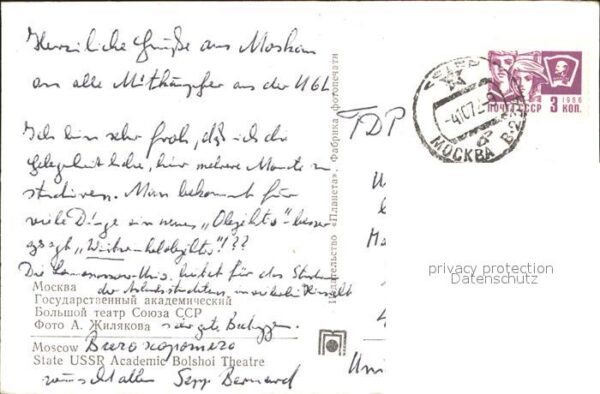 Herzliche Grüße aus Moskau
an alle Mitkämpfer aus der UGL
Ich bin sehr froh, daß ich die
Gelegenheit habe, hier mehrere Monate zu
studieren. Man bekommt für
viele Dinge ein neues „Objektiv" - besser
gesagt „Weitwinkelobjektiv"!??
Die Lomonossow-Uni. bietet für das Studium
der in vielerlei Hinsicht
sehr gute
Всего хорошего
wünscht allen Sepp Bernard
Москва
Государственный академический
Большой театр Союза ССР
Фото А. Жилякова
Moscow
State USSR Academic Bolshoi Theatre
Издательство «Планета». Фабрика фотопечати
FDP
U
Ma
4
Uni
МОСКВА
ПОЧТА СССР
1966
3 КОП.
privacy protection
Datenschutz